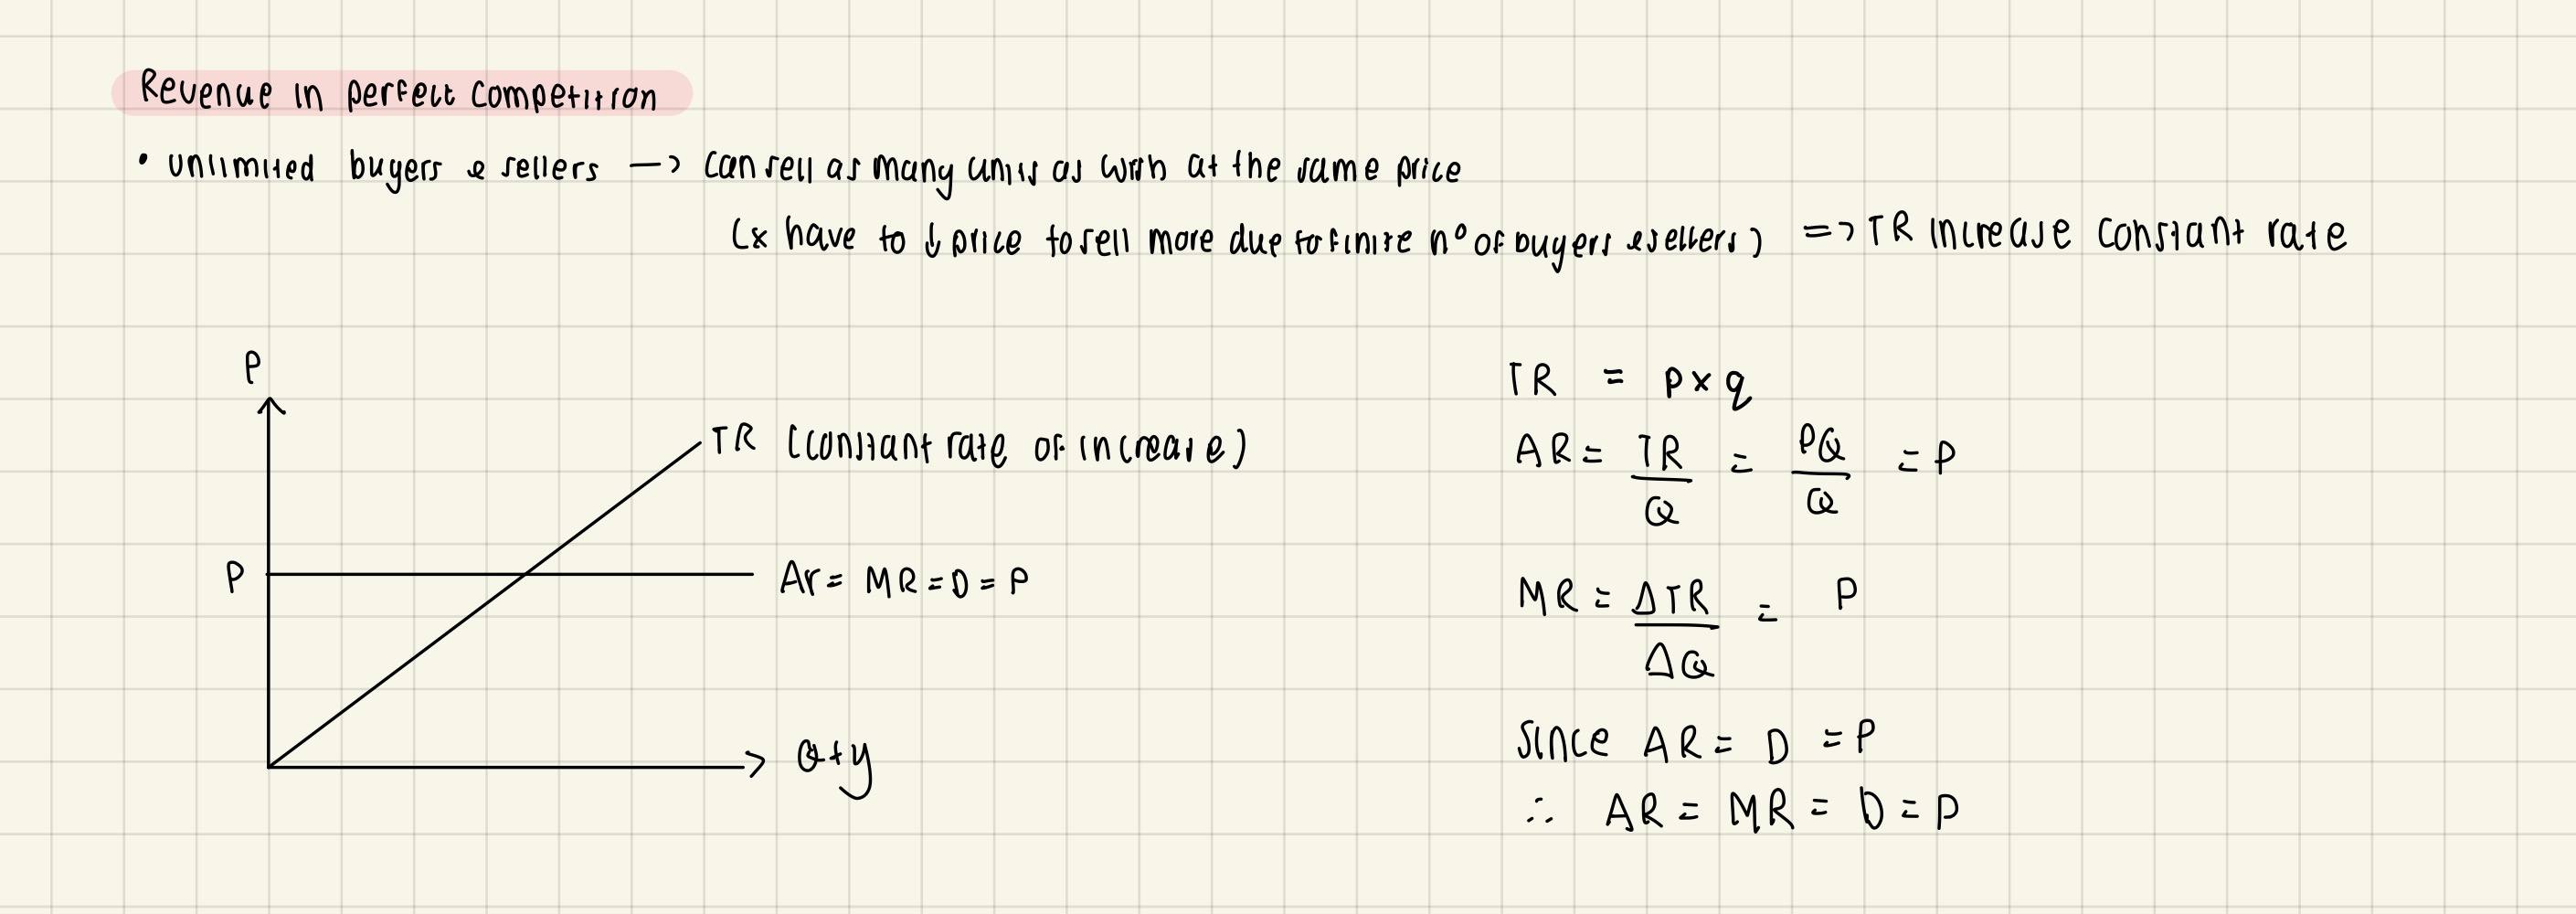 Revenue in perfect competition
• unlimited buyers & sellers —> can sell as many units as wish at the same price
(x have to ↓ price to sell more due to finite nº of buyers & sellers) => TR increase constant rate
P
TR (constant rate of increase)
P
Ar = MR = D = P
Qty
TR = p x q
AR = TR/Q = PQ/Q = P
MR = ΔTR/ΔQ = P
Since AR = D = P
∴ AR = MR = D = P